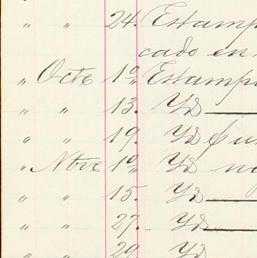 " " 24. Estamp
cado en
" Octe 1º " Estamp
" " 13. Yd
" " 19. Yd
" Nbre 1º " Yd
" " 15. Yd
" " 27. Yd
" " 29. Yd